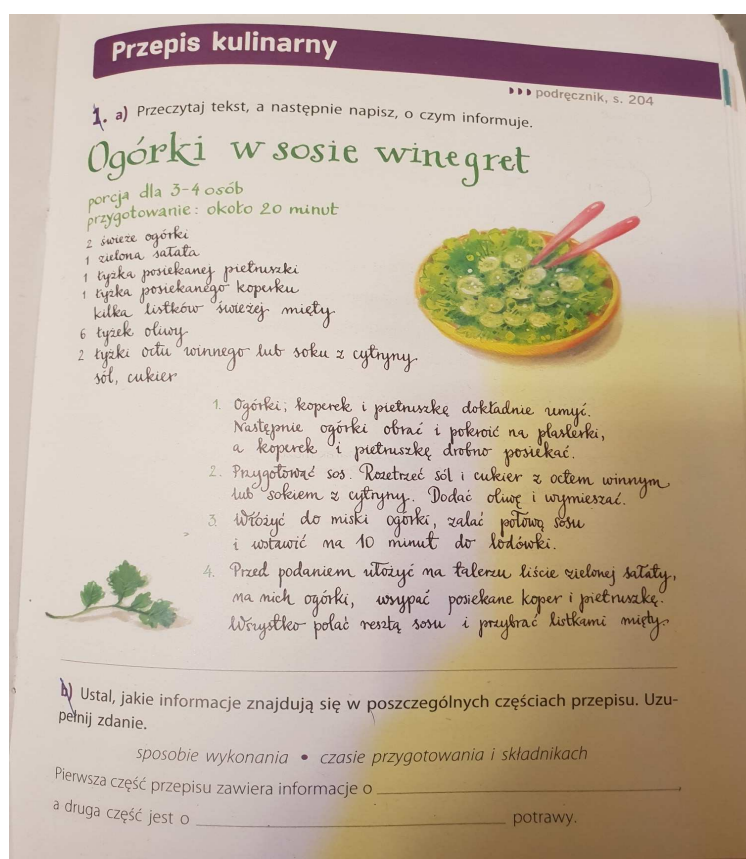 Przepis kulinarny
podręcznik, s. 204
1. a) Przeczytaj tekst, a następnie napisz, o czym informuje.
Ogórki w sosie winegret
porcja dla 3-4 osób
przygotowanie: około 20 minut
2 świeże ogórki
1 zielona sałata
1 łyżka posiekanej pietruszki
1 łyżka posiekanego koperku
kilka listków świeżej mięty
6 łyżek oliwy
2 łyżki octu winnego lub soku z cytryny
sól, cukier
1. Ogórki, koperek i pietruszkę dokładnie umyć.
Następnie ogórki obrać i pokroić na plasterki,
a koperek i pietruszkę drobno posiekać.
2. Przygotować sos. Rozetrzeć sól i cukier z octem winnym
lub sokiem z cytryny. Dodać oliwę i wymieszać.
3. Włożyć do miski ogórki, zalać połową sosu
i wstawić na 10 minut do lodówki.
4. Przed podaniem ułożyć na talerzu liście zielonej sałaty,
na nich ogórki, wsypać posiekane koper i pietruszkę.
Wszystko polać resztą sosu i przybrać listkami mięty.
b) Ustal, jakie informacje znajdują się w poszczególnych częściach przepisu. Uzu-
pełnij zdanie.
sposobie wykonania • czasie przygotowania i składnikach
Pierwsza część przepisu zawiera informacje o
a druga część jest o potrawy.